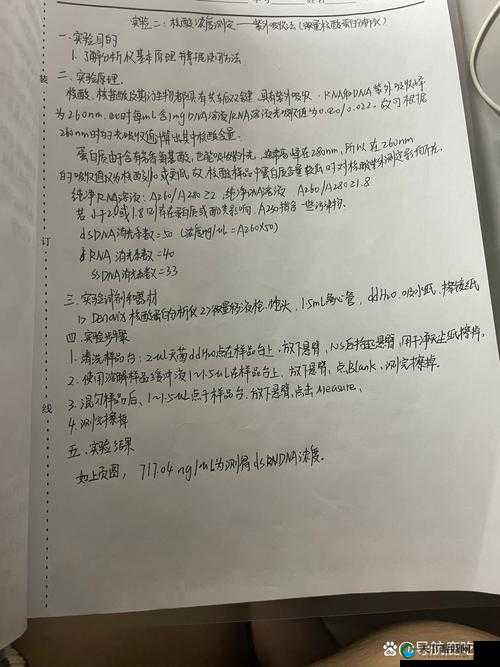 实验二:核酸浓度测定——紫外吸收法(微量核酸蛋白分析仪)
一.实验目的
1.了解分析仪基本原理并掌握使用方法
二.实验原理
核酸、核苷酸及其衍生物都具有共轭双键,具有紫外吸收.RNA和DNA紫外吸收峰
为260nm.
260nm时的光吸收值 算出其中核酸含量.
蛋白质由于含有芳香氨基酸,也能吸收紫外光,通常高峰在280nm,所以在260nm
的吸收值仅为核酸1/10或更低,故核酸样品中蛋白质含量较低时对核酸紫外测定影响不大.
纯净RNA溶液:A260/A280≥2,纯净DNA溶液 A260/A280≥1.8
若小于2或1.8则存在蛋白质或酚类影响.A230指含一些污染物.
dsDNA消光系数=50(浓度ng/μL=A260×50)
RNA 消光系数=40
ssDNA消光系数=33
装
订
线
三.实验试剂和器材
1> Denovix核酸蛋白分析仪 2>微量移液枪、枪头,1.5ml离心管,ddH2O 吸水纸.擦镜纸
四.实验步骤
1.清洗样品台:2μL灭菌ddH2O点在样品台上,放下悬臂,
2.使用溶解样品缓冲液1~1.5μL在样品台上,放下悬臂,点Blank,测完擦掉.
3.混匀样品后、1~1.5μL点于样品台.放下悬臂,点击Measure、
4.测完擦掉
五.实验结果
如上页图,717.04 ng/μL为测得dsDNA浓度。